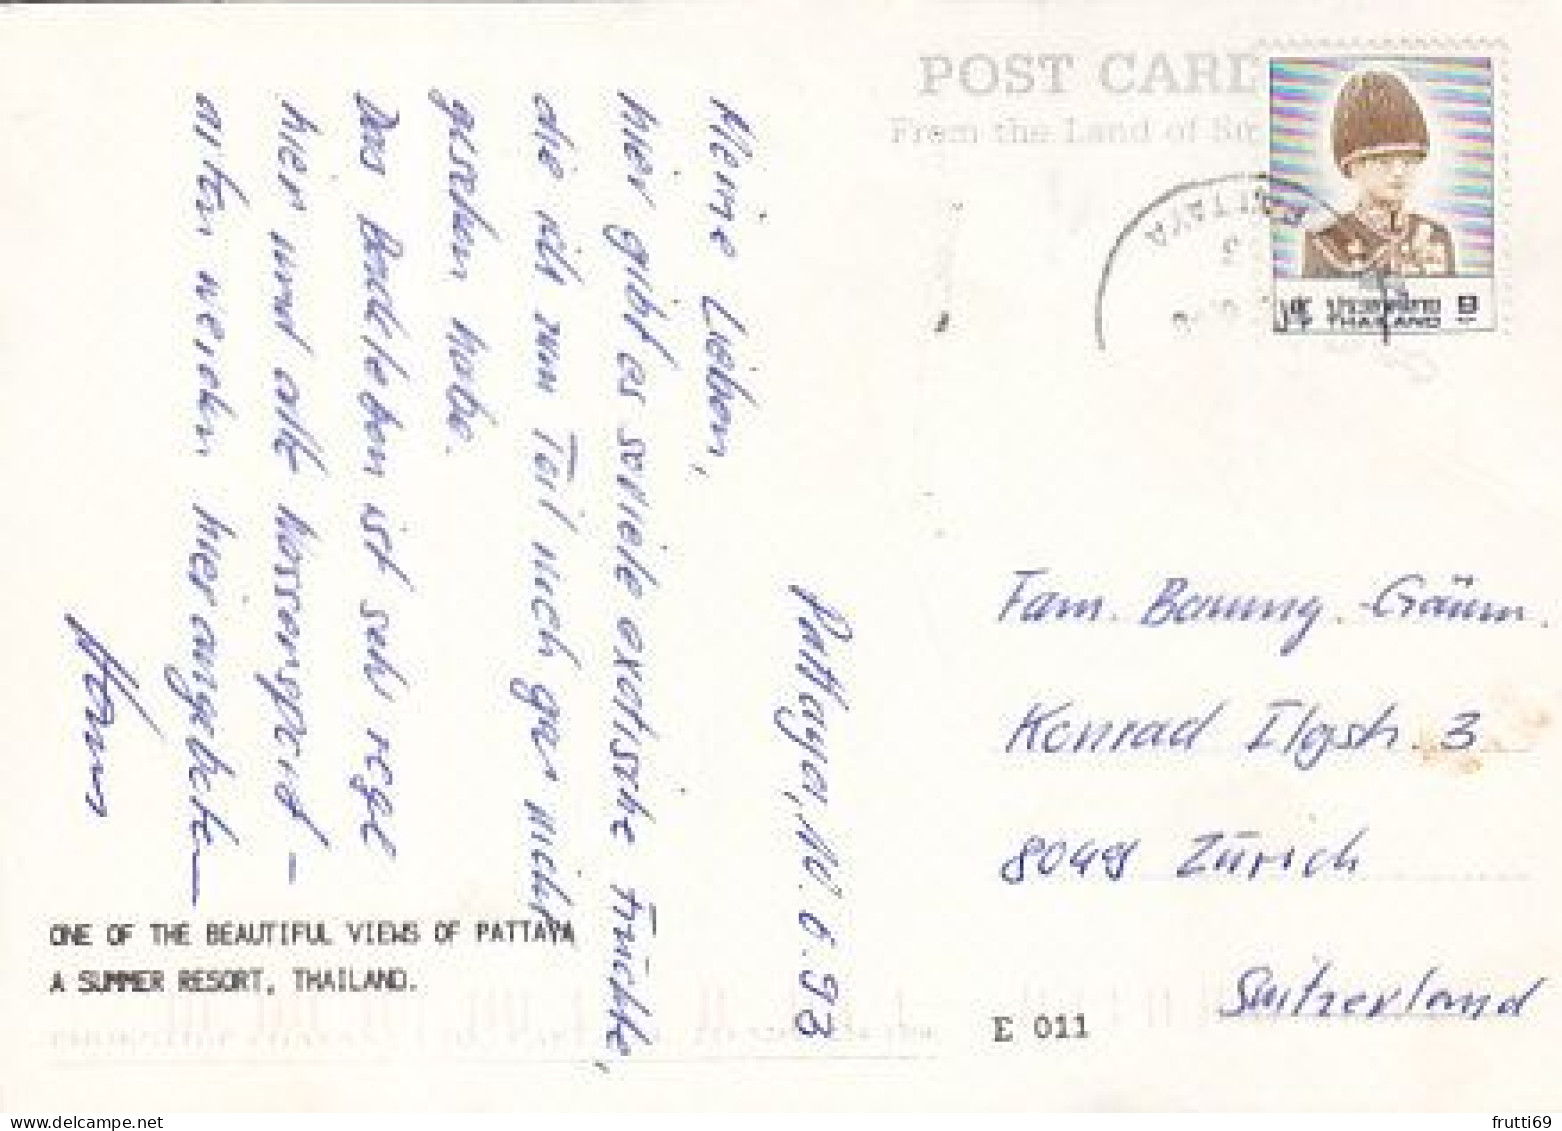 POST CARD
From the Land of
PATTAYA
THAILAND
9
Pattaya, 10.6.93
Meine Lieben,
hier gibt es soviele exotische Früchte,
die ich zum Teil noch gar nicht
gesehen habe.
Das Badeleben ist sehr rege
hier und alle Wassersport-
arten werden hier angebote-
Fam. Baumg.-Gräum.
Konrad Ilgstr. 3
8048 Zürich
Switzerland
ONE OF THE BEAUTIFUL VIEWS OF PATTAYA
A SUMMER RESORT, THAILAND.
E 011
frutti69
delcampe.net